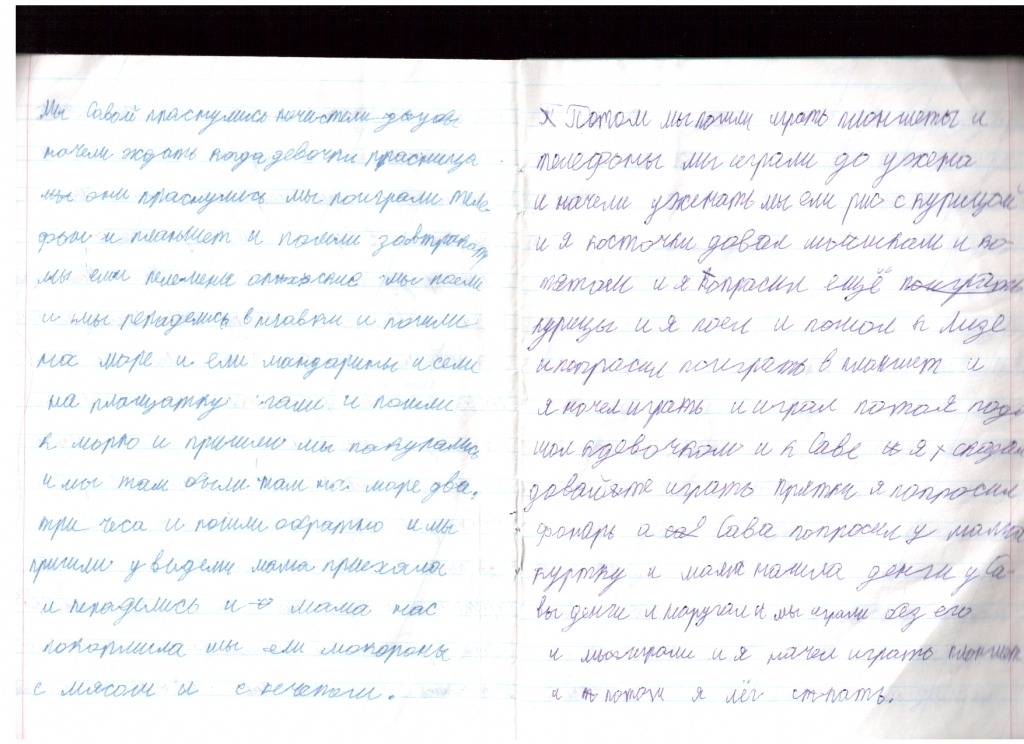 Мы Савой праснулись почистели зубы
начели ждать когда девочки праснуца
мы они праснулись мы поиграли теле
фон и планьшет и пошли зовтракать
мы ели пелемени мы поели
и мы пераделись в плавки и пошли
на море и ели мандарины и сели
на плащатку и пошли
к морю и пришли мы покупались
и мы там были там на море два.
три чеса и пошли обратно и мы
пришли увидели мама приехала
и перадились и мама нас
покормила мы ели макороны
с мясом и с кечепом.
Потом мы пошли играть планшеты и
телефоны мы играли до ужена
и начели уженать мы ели рис с курицой
и я косточки довал мышкам и ко-
тятам и я попрасил ещё поиграть
курицы и я поел и пошол к Лизе
и попрасил поиграть в планшет и
я начел играть и играл потом я подо
шол к девочкам и к Саве и я сказал
довайяте играть прятки я попросил
фонарь а Сава попросил у мамы
куртку и мама нашла денги у Са-
вы денги и наругала и мы играли без его
и мы играли и я начел играть планшет
и потом я лёг спать.